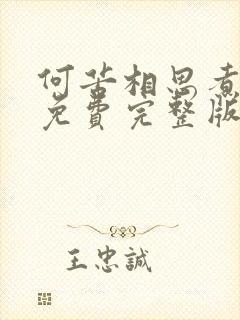 何苦相思煮
免费完整版
王忠誠